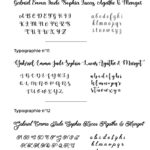 Gabriel Emma Jade Sophia Lucas Agathe & Margot
A B C D E F G H I
J K L M N O P Q R
S T U V W X Y Z
a b c d e f g h i j
k l m n o p q r
s t u v w x y z
Typographie n°11
Gabriel Emma Jade Sophia Lucas Agathe & Margot
A B C D E F G H I
J K L M N O P Q R
S T U V W X Y Z
a b c d e f g h i j
k l m n o p q r
s t u v w x y z
Typographie n°12
Gabriel Emma Jade Sophia Lucas Agathe & Margot
A B C D E F G H I
J K L M N O P Q R
S T U V W X Y Z
a b c d e f g h i j
k l m n o p q r
s t u v w x y z